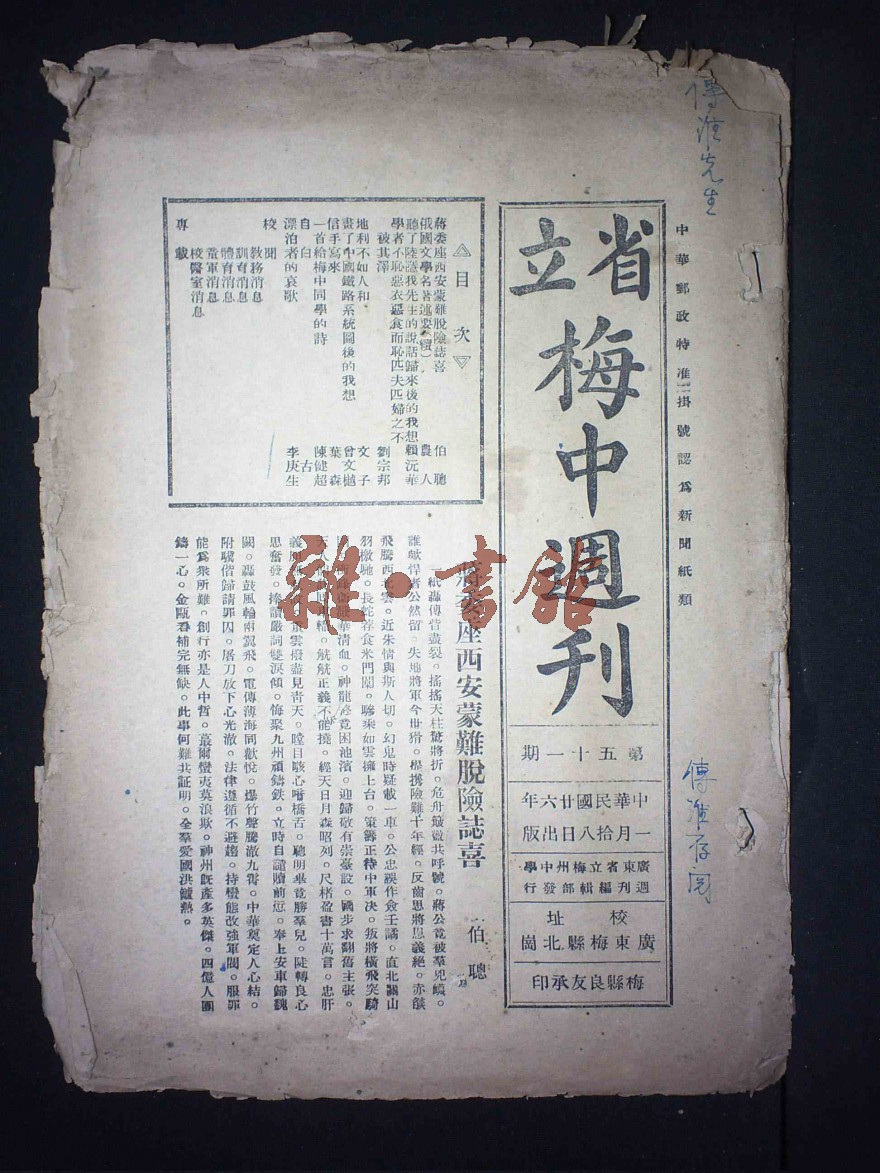 傅淮先生
中華郵政特准掛號認爲新聞紙類
省立
梅中週刊
第五十一期
中華民國廿六年
一月拾八日出版
廣東省立梅州中學
週刊編輯部發行
校址
廣東梅縣北崗
梅縣良友承印
傅淮存閱
目次
蔣委座西安蒙難脫險誌喜 伯聰
俄國文學名著述要(續) 農人
聽了陸謐我先生的說話歸來後的我想 賴沅華
學者不恥惡衣惡食而恥匹夫匹婦之不
被其澤 劉宗邦
地利不如人和 文子
畫了中國鐵路系統圖後的我想 曾文樾
信手寫來 葉森
一首給梅中同學的詩 陳健超
自白 古
漂泊者的哀歌 李庚生
校聞
教務消息
訓育消息
體育消息
童軍消息
校醫室消息
專載
蔣委座西安蒙難脫險誌喜
伯聰
一紙轟傳眥盡裂。搖搖天柱驚將折。危舟皴皴共呼號。蔣公竟被羣兇蟆。
誰歟悍者公然留。失地將軍今世猾。提携險難十年經。反面思將恩義絕。赤燄
飛騰西北雲。近朱情與斯人切。幻鬼時疑載一車。公忠誤作僉壬譎。直北關山
羽檄馳。長蛇荐食來門闑。驂乘如雲擁上台。策籌正待中軍决。叛將橫飛突騎
華清血。神龍終竟困池濱。迎歸敬有崇臺設。國步求翻舊主張。
天人。航航正義不能撓。經天日月森昭列。尺楮盈書十萬言。忠肝
義。雲撥盡見青天。瞠目駭心嚼橋舌。聰明畢竟勝羣兒。陡轉良心
思奮發。捧讀嚴詞雙淚傾。悔聚九州頑鑄鉄。立時自譴贖前愆。奉上安車歸魏
闕。轟鼓風輪兩翼飛。電傳薄海同歡悅。爆竹聲騰澈九霄。中華奠定人心結。
附驥偕歸請罪囚。屠刀放下心光澈。法律遵循不避趨。持螢態改強軍閥。服罪
能爲衆所難。創行亦是人中哲。蕞爾蠻夷莫浪欺。神州既產多英傑。四億人團
鑄一心。金甌看補完無缺。此事何難共証明。全羣愛國洪爐熱。
雜·書館